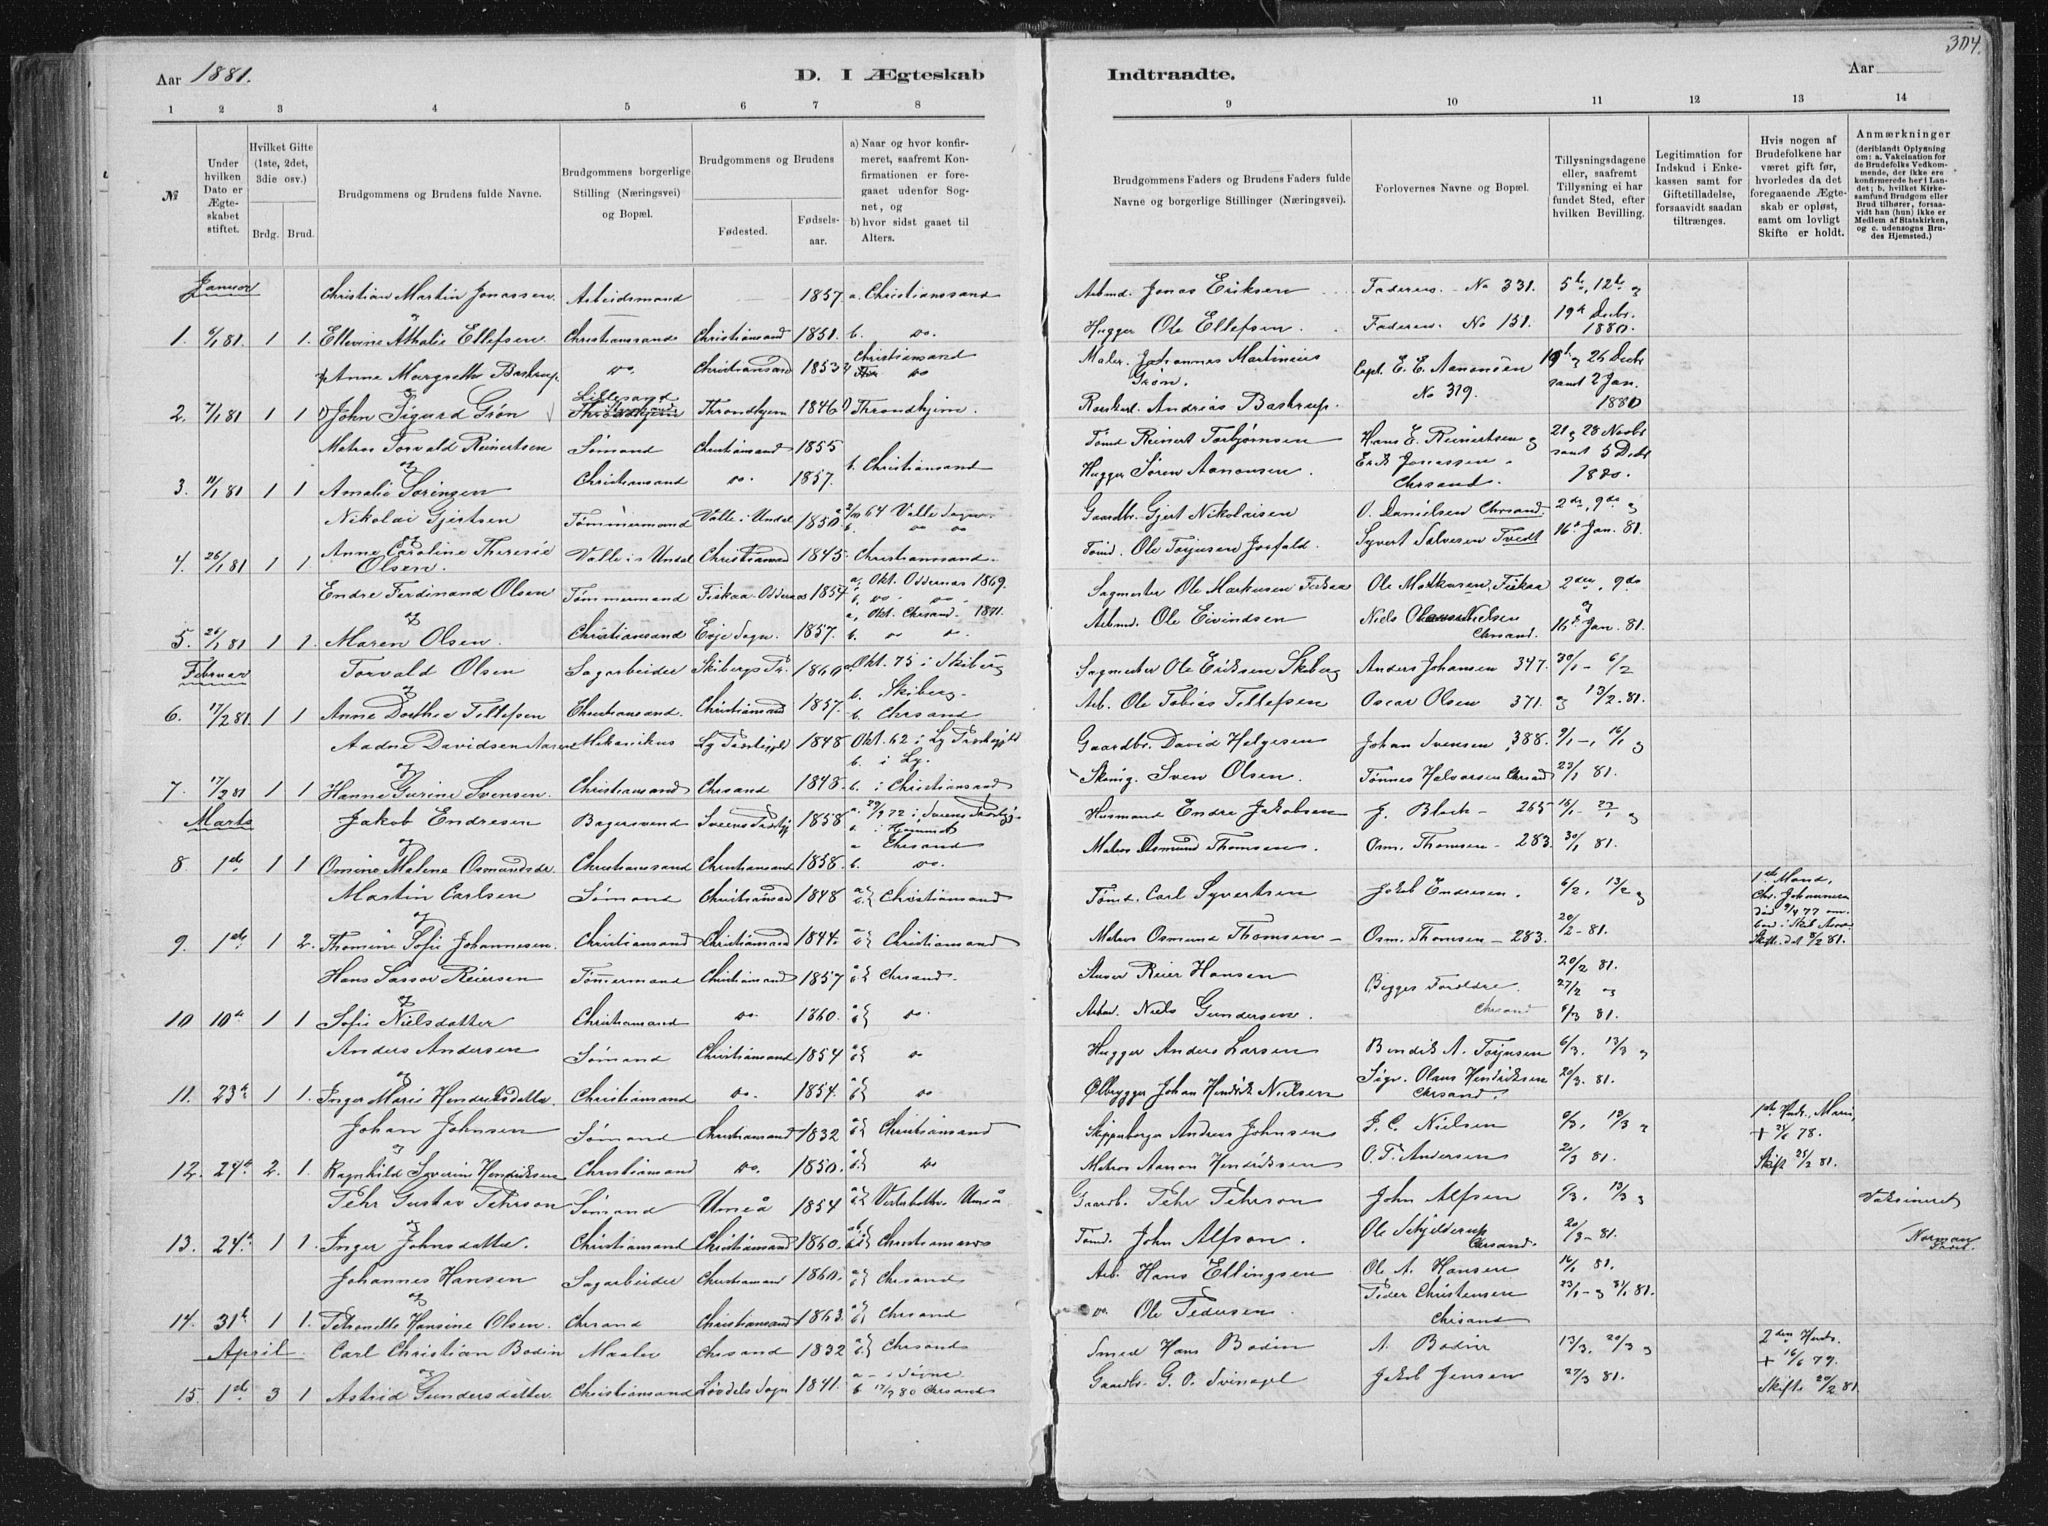 304.
Aar 1881.
D. I Ægteskab
Indtraadte.
Aar
1 2 3 4 5 6 7 8
9 10 11 12 13 14
№
Under hvilken Dato er Ægteskabet stiftet.
Hvilket Gifte (1ste, 2det, 3die osv.)
Brdg. Brud.
Brudgommens og Brudens fulde Navne.
Brudgommens borgerlige Stilling (Næringsvei) og Bopæl.
Brudgommens og Brudens
Fødested.
Fødselsaar.
a) Naar og hvor konfirmeret, saafremt Konfirmationen er foregaaet udenfor Sognet, og
b) hvor sidst gaaet til Alters.
Brudgommens Faders og Brudens Faders fulde Navne og borgerlige Stillinger (Næringsvei).
Forlovernes Navne og Bopæl.
Tillysningsdagene eller, saafremt Tillysning ei har fundet Sted, efter hvilken Bevilling.
Legitimation for Indskud i Enkekassen samt for Giftetilladelse, forsaavidt saadan tiltrænges.
Hvis nogen af Brudefolkene har været gift før, hvorledes da det foregaaende Ægteskab er opløst, samt om lovligt Skifte er holdt.
Anmærkninger (deriblandt Oplysning om: a. Vakcination for de Brudefolks Vedkommende, der ikke ere konfirmerede her i Landet; b. hvilket Kirkesamfund Brudgom eller Brud tilhører, forsaavidt han (hun) ikke er Medlem af Statskirken, og c. udensogns Brudes Hjemsted.)
Januar Christian Martin Jonassen Arbeidsmand 1857. a. Christianssand Arbmd. Jonas Eriksen Faderen No 331. 5te, 12te og
1. 6/1 81. 1 1. og Ellevine Athalie Ellefsen Christianssand Christianssand 1851. b. do. Hugger Ole Ellefsen. Faderen No 151. 19de Decbr. 1880.
Anne Margrethe Bastrup do. Christianssand 1853 Christiansand do Maler Johannes Martinius Grøn. Capt. E. E. Aanonsen No 319. 19de og 26 Decbr samt 2 Jan. 1880
2. 7/1 81 1 1 og John Sigurd Grøn Lillesand Throndhjem 1846 Throndhjem. Andreas Bastrup.
Matros Torvald Reinertsen Sømand Christianssand 1855 Tømd Reinert Torbjørnsen Hans E. Reinertsen og 21 og 28 Novbr samt 5 Decbr
3. 11/1 81 1 1 og Amalie Sørensen Christianssand do. 1857. b. Christianssand Hugger Søren Aanonsen. Erik Jonassen Chrsand. 1880.
Nikolai Gjertsen Tømmermand Valle i Undal 1850 64 Valle Sogn b. do do Gaardbr. Gjert Nikolaisen O. Danielsen Chrsand. 2den, 9de og
4. 26/1 81 1 1 og Anne Caroline Theresie Olsen. Valle i Undal Christianssand 1845. Christianssand. Tømd. Ole Torjusen Syvert Salvesen Tvedt 16de Jan. 81.
Endre Ferdinand Olsen Tømmermand Fiskaa Oddernes 1854 a. Okt. Oddernes 1869. b. do do Sagmester Ole Markusen Fiskaa Ole Markusen, Fiskaa 2den, 9de
5. 26/1 81 1 1. og Maren Olsen. Christianssand Evje Sogn. 1857. a. Okt. Chrsand. 1871. b. do do. Arbmd. Ole Eivindsen Niels Nielsen Chrsand. og 16de Jan. 81.
Februar Torvald Olsen Sagarbeider 1860 Okt. 75 i Skiberg b. Skiberg. Sagmester Ole Eriksen Skiberg Anders Johansen 347. 30/1 - 6/2
6. 17/2 81. 1 1 og Anne Dorthea Tellefsen Christianssand. Christianssand 1857. b. Chrsand Arb. Ole Tobias Tellefsen Oscar Olsen 371. og 13/2. 81.
Aadne Davidsen Mekanikus 1848. Okt. 62 i b. i Gaardbr. David Helgesen Johan Svensen, 388. 9/1 -, 16/1 og
7. 17/2 81 1 1 og Hanne Gurine Svensen. Christianssand Chrsand 1848. b. i Christianssand Sven Olsen. Tønnes Halvorsen Chrsand 23/1 81.
Marts Jakob Endresen Bagersvend 1858 a. 29/9 72 i b. i Hjemmet Husmand Endre Jakobsen J. Bloch - 265 16/1 og
8 1ste 1 1 og Osmine Malene Osmundsdr Christianssand Christianssand 1858. a Chrsand b. do. Matros Osmund Thomsen Osm. Thomsen - 283. 30/1 81.
Martin Carlsen Sømand Christianssand 1848 a b} Christianssand Tømd. Carl Syvertsen Jakob Endresen. 6/2, 13/2 og 1ste Mand, Chr. Johannesen død 9/4 77
9. 1ste. 1 2. og Thomine Sofie Johannesen. Christianssand Christianssand 1844. a b} Christianssand Matros Osmund Thomsen Osm. Thomsen - 283. 20/2 - 81. Skifte dat 8/2 81.
Hans Lassor Reiersen Tømmermand Christianssand 1857 a b} Chrsand. Reier Hansen Begges Forældre. 20/2 81. 27/2 og
10 10de 1 1 og Sofie Nielsdatter Christianssand do. 1860. a b} do. Arbmd. Niels Gundersen. Chrsand 6/3 81.
Anders Andersen Sømand Christianssand 1854 a b} do Hugger Anders Larsen Bendik A. Torjusen 6/3, 13/3 og
11. 23de 1 1. og Inger Marie Hendriksdatter. Christianssand do. 1854. a b} do Ølbrygger Johan Hendrik Nielsen Sigv. Olaus Hendriksen Chrsand. 20/3. 81.
Johan Johnsen Sømand Christianssand 1832 a b} Christianssand Andreas Johnsen F. C. Nielsen 6/3, 13/3 og 1ste Hustr. Maren, + 24/6 78.
12. 24de 2. 1. og Ragnhild Severine Hendriksen Christianssand do. 1850. a b} do Matros Aanon Hendriksen O. T. Andersen 20/3 81. Skifte 25/2 81.
Pehr Gustav Pehrson Sømand Umeå 1854 a b} Vesterbotten Umeå Gaardb. Pehr Pehrson John Alfsen 6/3, 13/3 og Vaksineret
13. 24de 1 1. og Inger Johnsdatter. Christianssand Christianssand 1860. a b} Christianssand Tømd. John Alfson. Ole Schjelderup Chrsand. 20/3 - 81.
Johannes Hansen Sagarbeider Christianssand 1860. a b} Chrsand Arb. Hans Ellingsen Ole A. Hansen 16/1 81.
14. 31te 1 1. og Petronelle Hansine Olsen. Chrsand Christianssand 1863. a b} Chrsand do. Ole Pedersen. Peder Christensen Chrsand 23/1 - og 31/1 81.
April. Carl Christian Bodin Maaler Chrsand 1832 a b} Chrsand Smed Hans Bodin A. Bodin 13/3, 20/3 og 2den Hustr. + 16/6 79.
15. 1ste 3 1 og Astrid Gundersdatter Christianssand Løvdals Sogn 1841. a - i Søgne b 80 Chrsand Gaardbr. G. O. Jakob Jensen 27/3 81. Skifte 20/2 81.